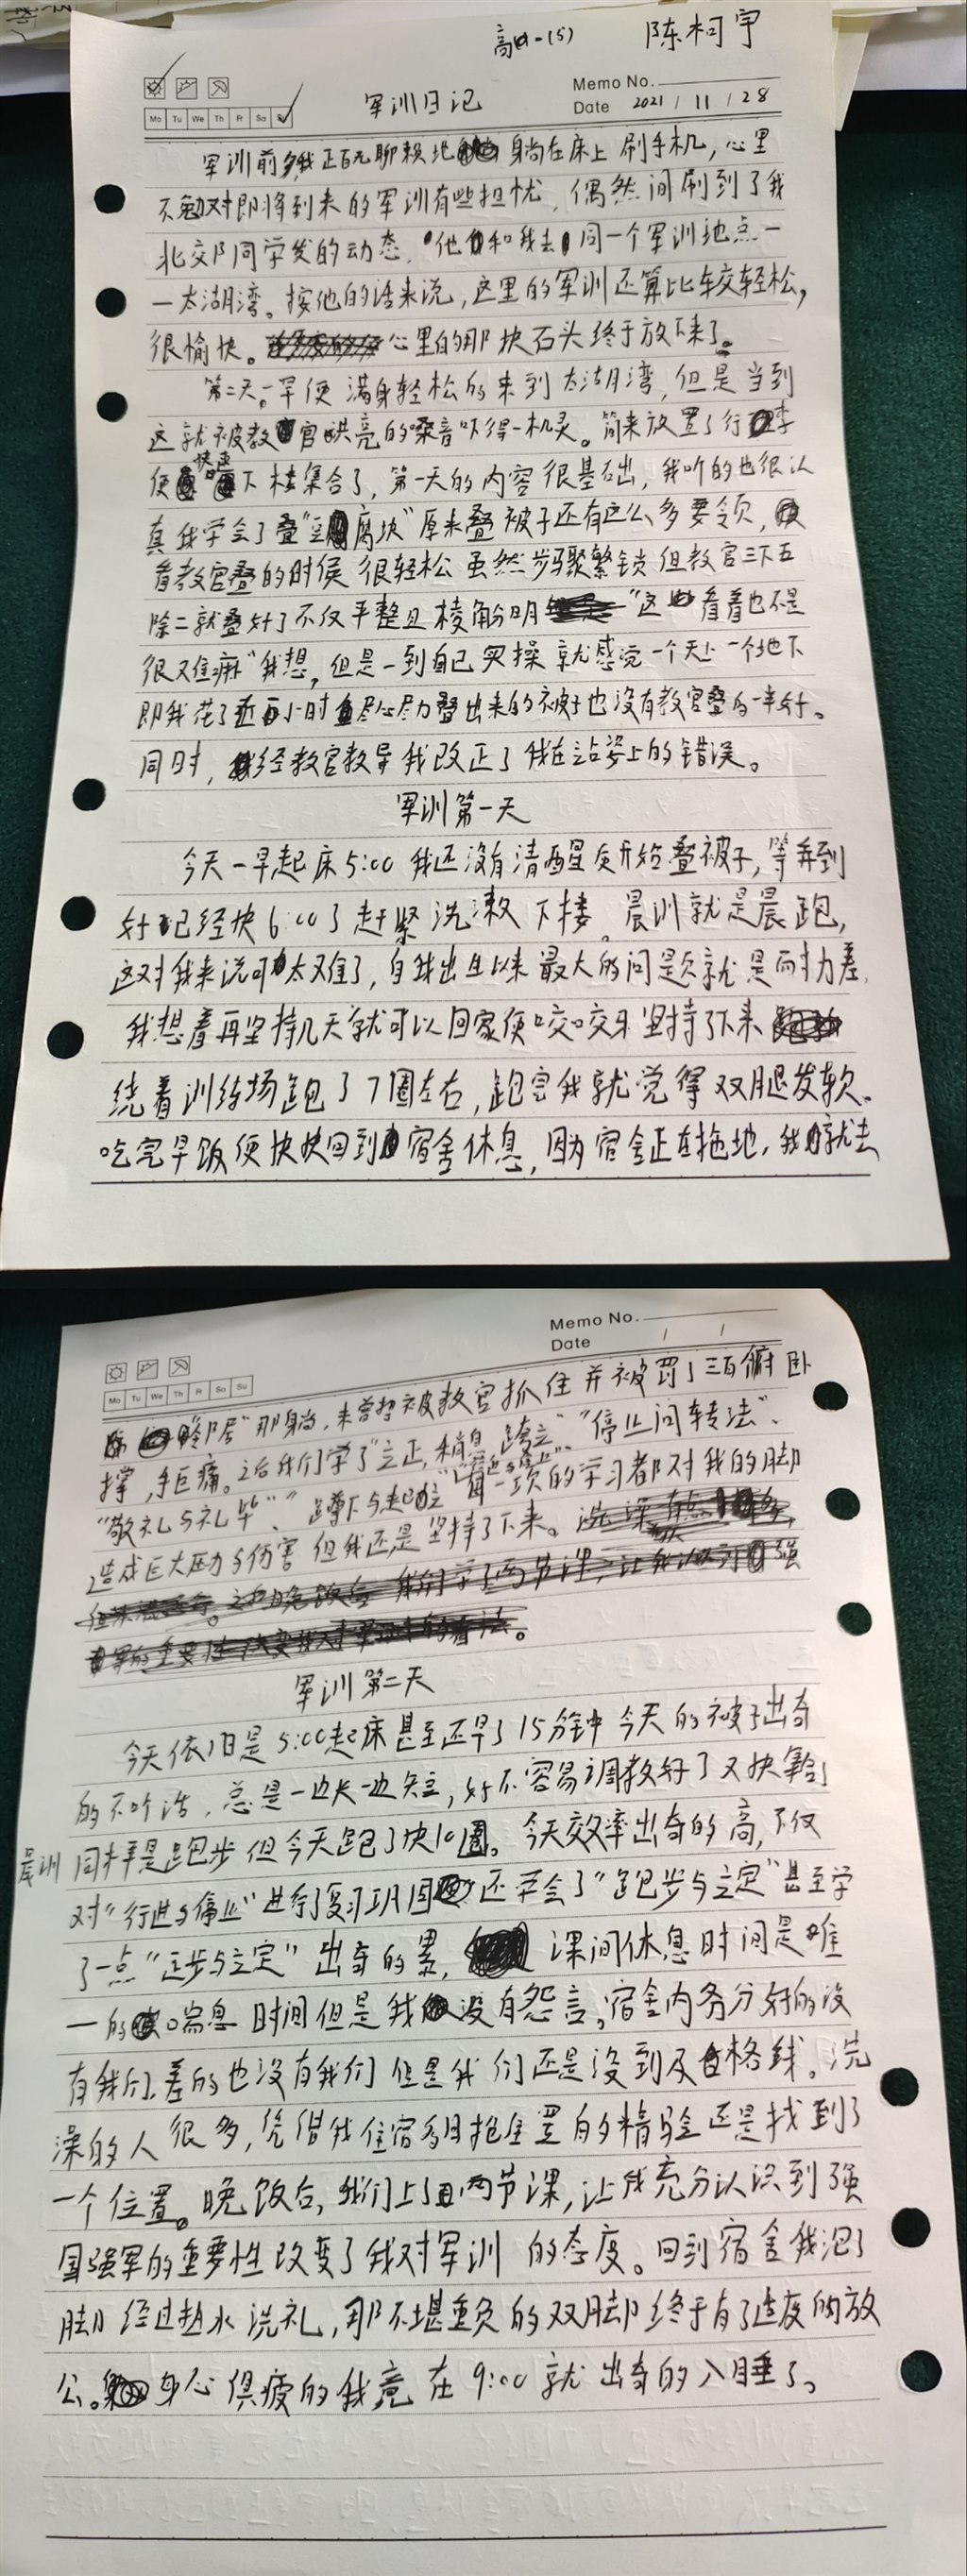 高一(5) 陈柯宇
Memo No.
军训日记
Mo Tu We Th Fr Sa Su
Date 2021 / 11 / 28
军训前我正百无聊赖地躺在床上刷手机,心里
不勉对即将到来的军训有些担忧,偶然间刷到了我
北交的同学发的动态.他和我去同一个军训地点一
一太湖湾。按他的话来说,这里的军训还算比较轻松,
很愉快。心里的那块石头终于放下来了。
第二天一早便满身轻松的来到太湖湾,但是当到
这就被教官洪亮的嗓音吓得一机灵。简来放置了行李
便快速下楼集合了,第一天的内容很基础,我听的也很认
真我学会了叠"豆腐块"原来叠被子还有这么多要领,
看教官叠的时候很轻松虽然步骤繁锁但教官三下五
除二就叠好了不仅平整且棱角分明"这看着也不是
很难嘛"我想,但是一到自己实操就感觉一个天上一个地下
即我花了近小时尽心尽力叠出来的被子也没有教官叠的一半好。
同时,经教官教导我改正了我在站姿上的错误。
军训第一天
今天一早起床5:00我还没有清醒便开始叠被子,等弄到
好已经快6:00了赶紧洗漱下楼。晨训就是晨跑,
这对我来说可太难了,自我出生以来最大的问题就是耐力差.
我想着再坚持几天就可以回家便咬咬牙坚持了下来
绕着训练场跑了7圈左右,跑完我就觉得双腿发软。
吃完早饭便快快回到宿舍休息,因为宿舍正在拖地,我就去
Memo No.
Date / /
Mo Tu We Th Fr Sa Su
"邻居"那躺,未曾想被教官抓住并被罚了三百俯卧
撑,手巨痛。之后我们学了"立正,稍息,跨立""停止间转法"、
"敬礼与礼毕"、"蹲下与起立""行进与停止"每一项的学习都对我的脚
造成巨大压力与伤害但我还是坚持了下来。
军训第二天
今天依旧是5:00起床甚至还早了15分钟今天的被子出奇
的不听话,总是一边长一边短,好不容易调教好了又快集合了
晨训同样是跑步但今天跑了快10圈。今天效率出奇的高,不仅
对"行进与停止"进行了复习巩固还学会了"跑步与立定"甚至学
了一点"正步与立定"出奇的累,课间休息时间是唯
一的喘息时间但是我没有怨言。宿舍内务分好的没
有我们,差的也没有我们但是我们还是没到及格线。洗
澡的人很多,凭借我住宿多日抢位置的经验还是找到了
一个位置。晚饭后,我们上了两节课,让我充分认识到强
国强军的重要性改变了我对军训的态度。回到宿舍我泡了
脚经过热水洗礼,那不堪重负的双脚终于有了适度的放
公。身心俱疲的我竟在9:00就出奇的入睡了。